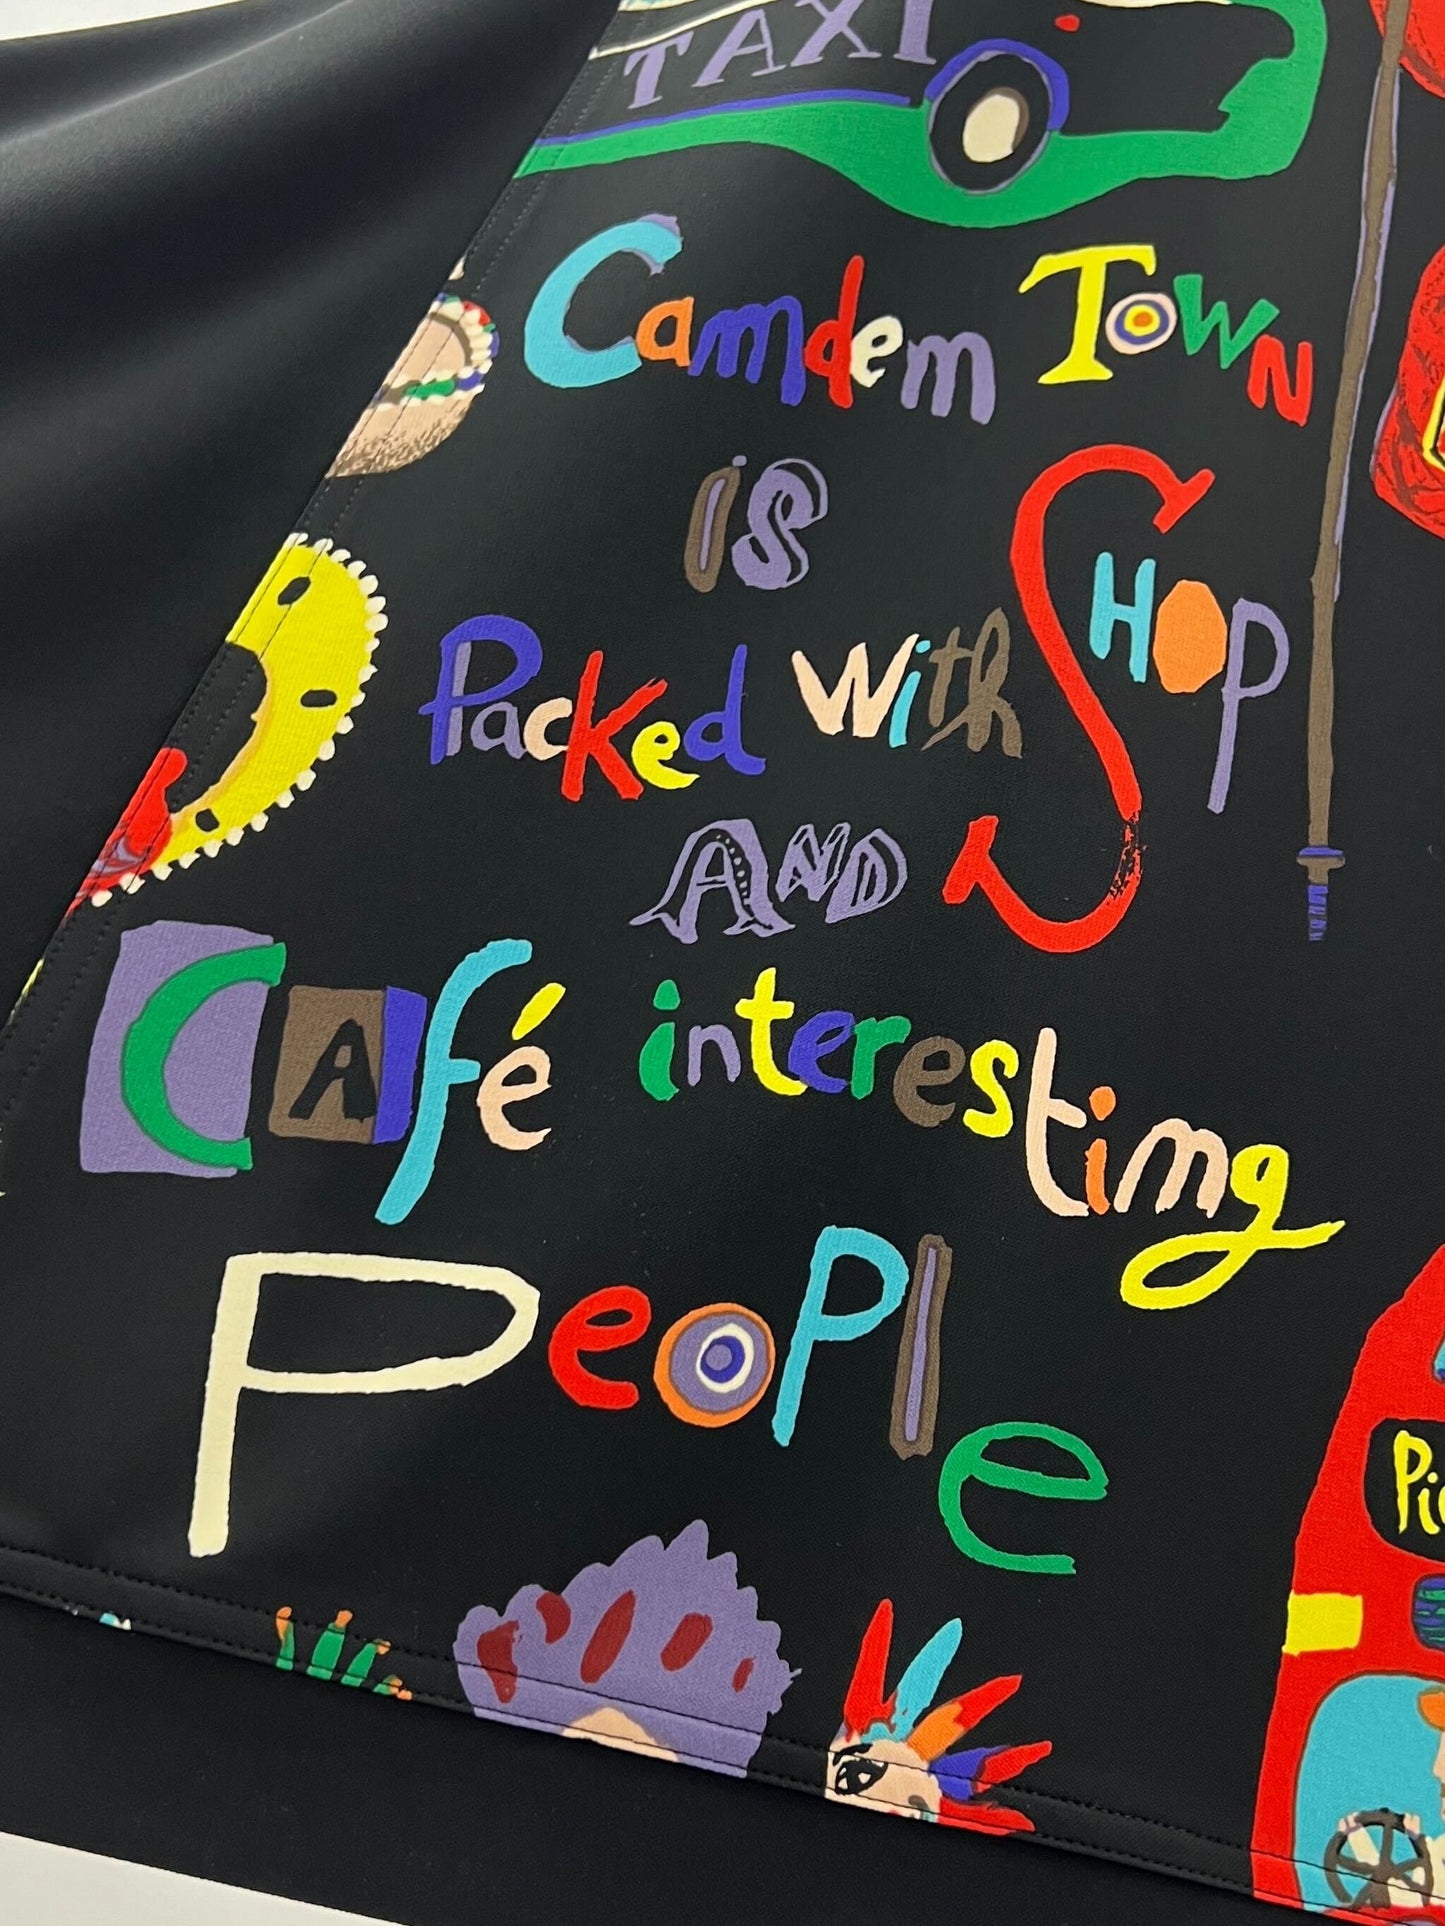 TAXI
Camden Town
is
Packed with SHOP
AND
Café interesting
People